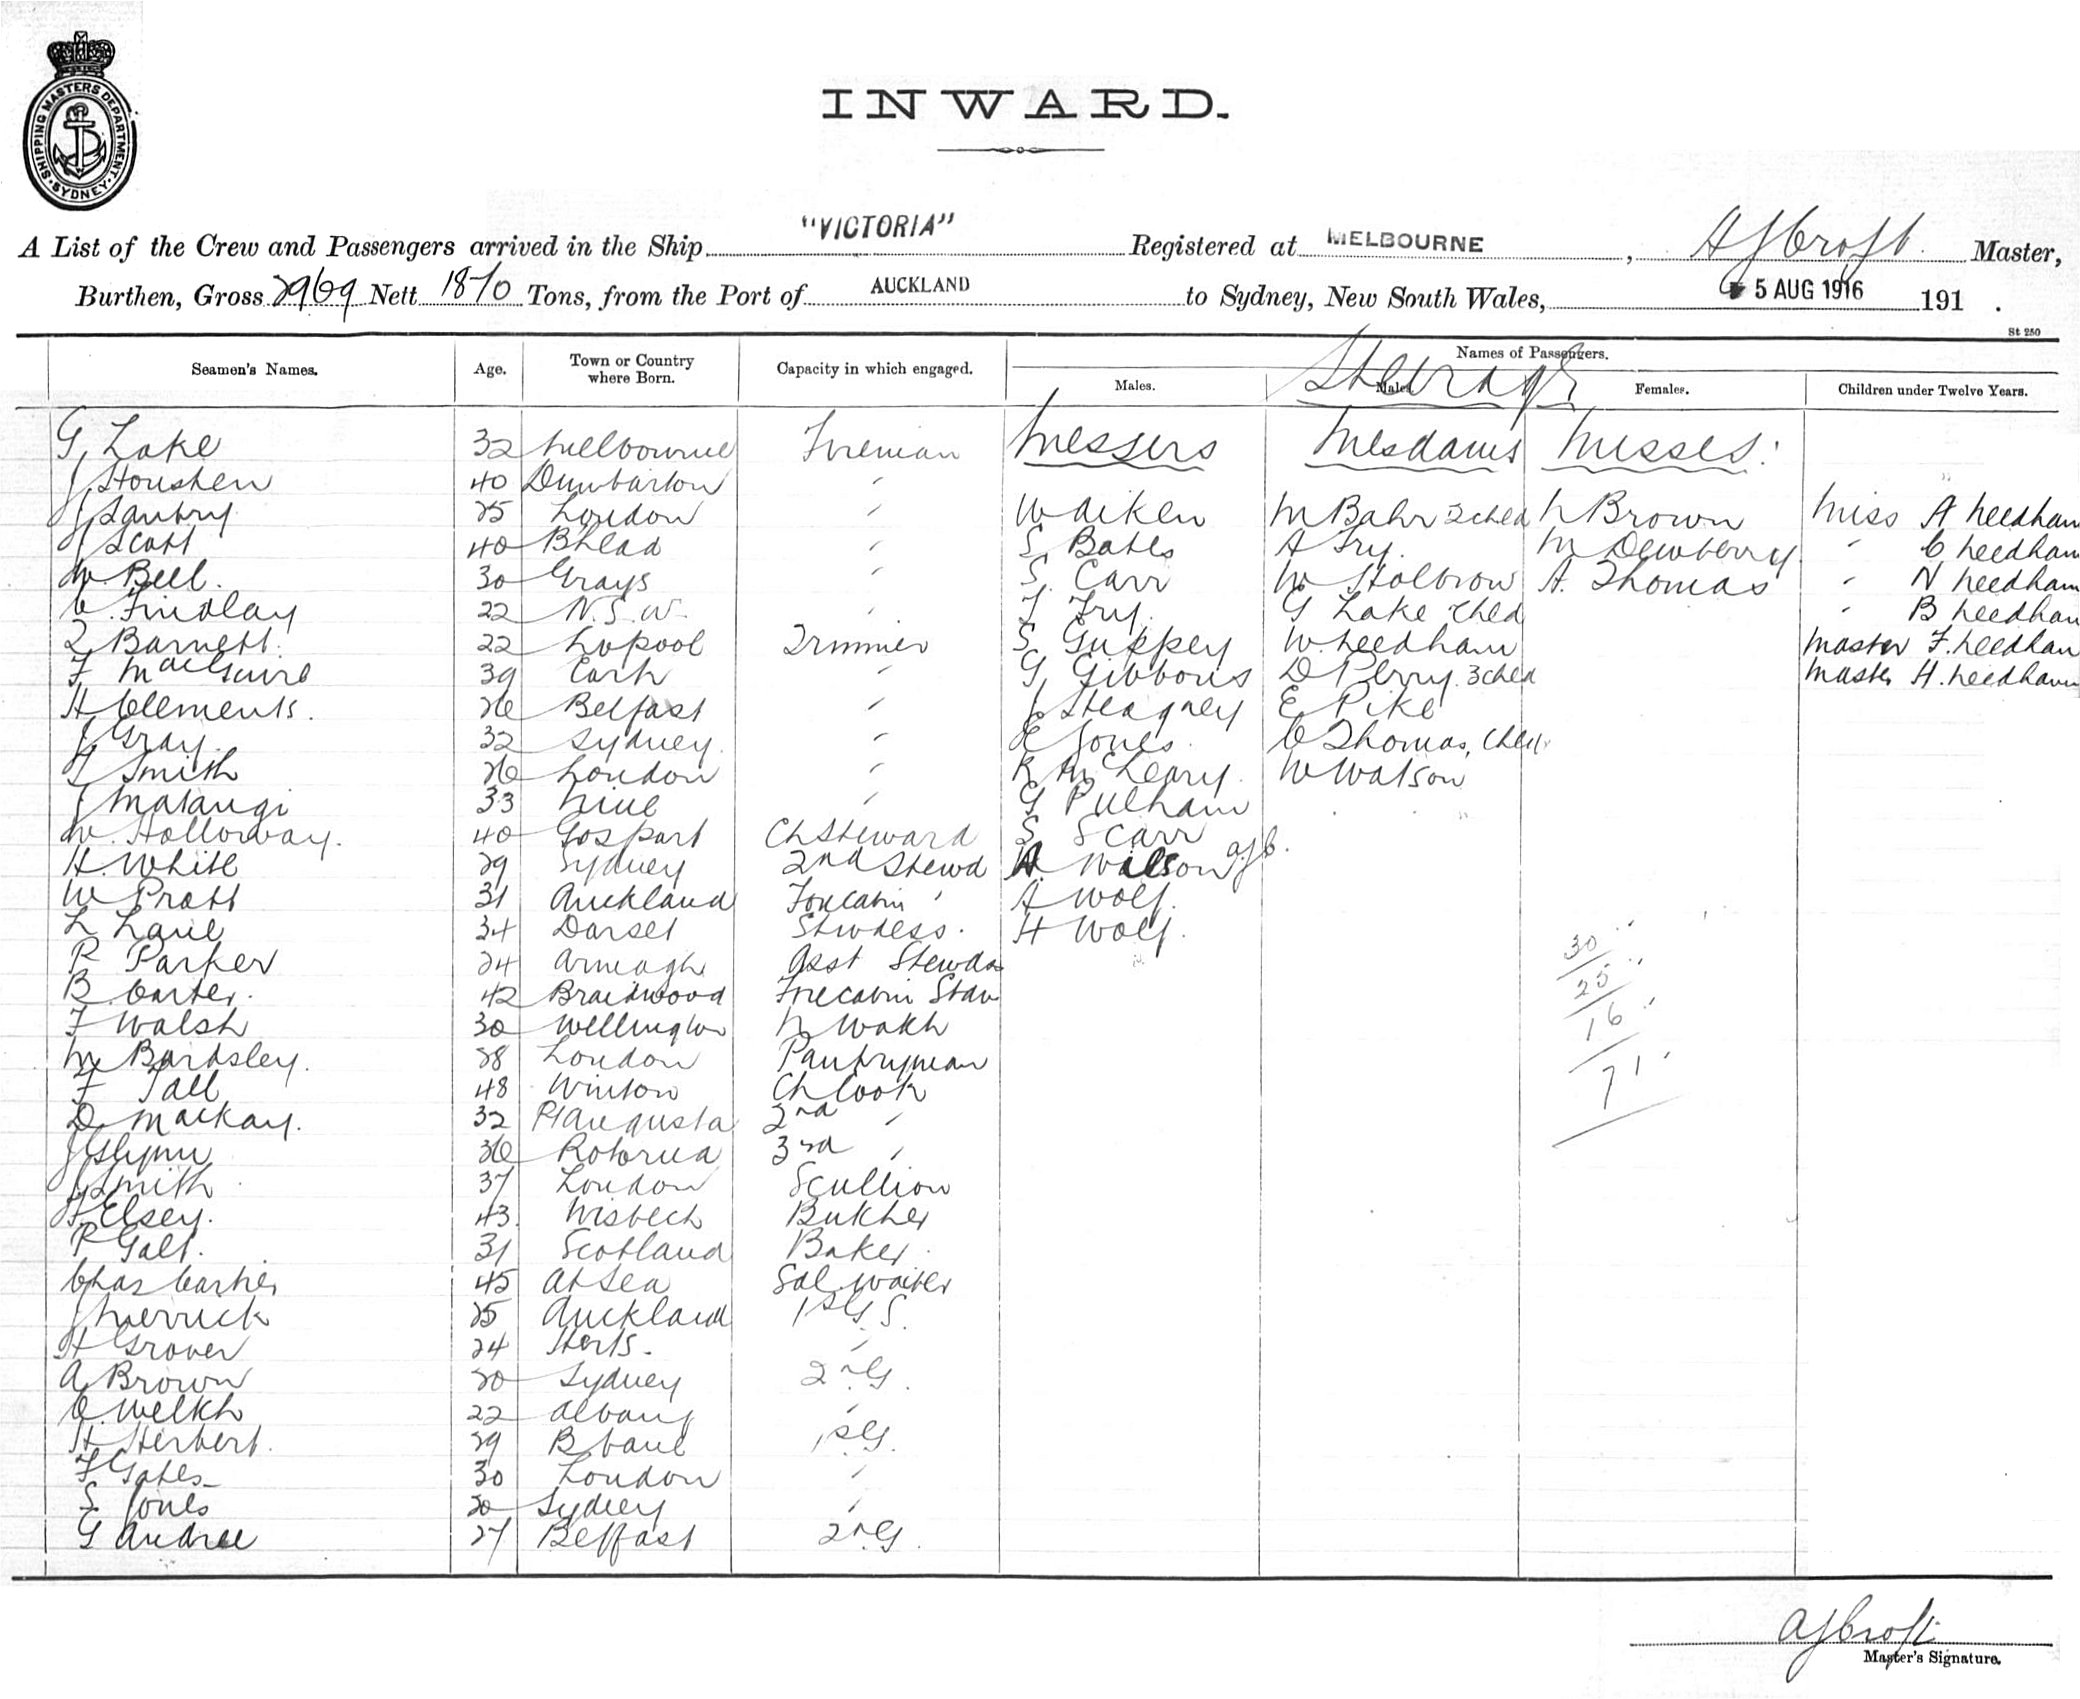 SHIPPING MASTERS DEPARTMENT. SYDNEY.
INWARD.
A List of the Crew and Passengers arrived in the Ship "VICTORIA" Registered at MELBOURNE, A J Croft. Master,
Burthen, Gross 2969 Nett 1870 Tons, from the Port of AUCKLAND to Sydney, New South Wales, 5 AUG 1916 191 .
St 250
Seamen's Names. Age. Town or Country where Born. Capacity in which engaged. Names of Passengers. Steerage
Males. Males. Females. Children under Twelve Years.
G Lake 32 Melbourne Fireman Messers Mesdames Misses.
J 40 Dumbarton "
J 25 London " W Aiken M Bahr 2 Chld N Brown Miss A Needham
J Scott 40 B'head " S. Bates A Fry. M Dewberry " C Needham
W. Bell. 30 Grays " S. Carr W A. Thomas " N Needham
C Findlay 22 N.S.W. " F Fry. G Lake Chld " B Needham
T Barnett. 22 L'pool Trimmer S Guppey W. Needham Master F. Needham
F MacGuire 39 Cork " G Gibbons D Perry. 3 Chld Master H. Needham
H Clements. 26 Belfast " J E Pike
J Gray. 32 Sydney. " Jones. C Thomas, Chld.
T Smith 26 London " R McLeary. W Watson
J Matangi 33 Niue " G Pulham
W. Holloway. 40 Gosport Ch Steward S Scarr
H. White 29 Sydney 2nd Stewd A. Wilson AJC.
W Pratt 31 Auckland Forecabin " A Wolf.
L Lane 34 Dorset Stwdess. H Wolf.
R Parker 24 Armagh Asst Stewdss
B. Carter. 42 Braidwood Forecabin Stew
F Walsh 30 Wellington N Watch
M Bardsley. 28 London Pantryman
F Tall 48 Winton Ch Cook
D Mackay. 32 Pt Augusta 2nd "
J Glynn 36 Rotorua 3rd "
J Smith 37 London Scullion
F Elsey. 43. Wisbech Butcher
R Galt. 31 Scotland Baker.
Chas Carter 45 At Sea Sal. Waiter
J Merrick 25 Auckland 1st G. S.
H Grover 24 Herts. "
A Brown 20 Sydney 2nd G.
C. Welch 22 Albany "
H Herbert. 29 B'bane 1st G.
F Gates 30 London "
S Jones 20 Sydney "
G Andree 27 Belfast 2nd G.
30
25
16
71
A J Croft
Master's Signature.